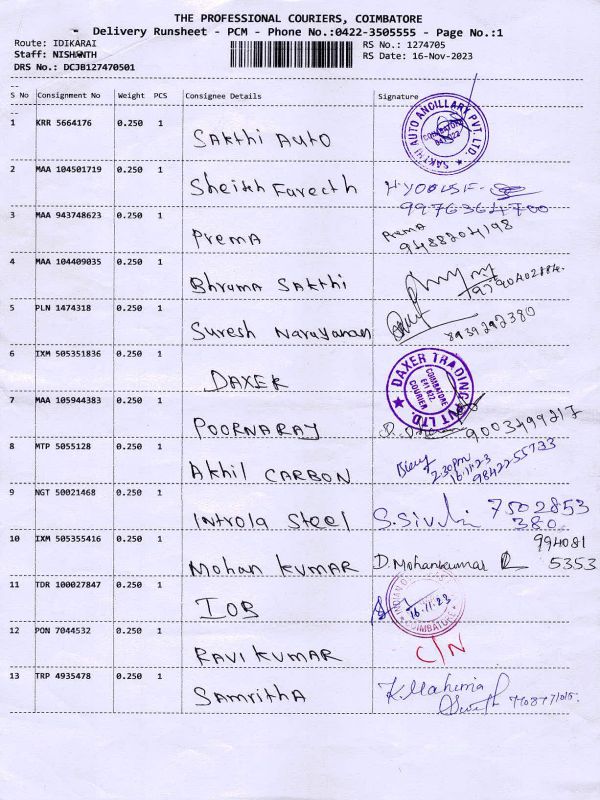 THE PROFESSIONAL COURIERS, COIMBATORE
- Delivery Runsheet - PCM - Phone No.:0422-3505555 - Page No.:1
Route: IDIKARAI RS No.: 1274705
Staff: NISHANTH RS Date: 16-Nov-2023
DRS No.: DCJB127470501
S No Consignment No Weight PCS Consignee Details Signature
1 KRR 5664176 0.250 1 Sakthi Auto
SAKTHI AUTO ANCILLARY PVT. LTD. COIMBATORE
2 MAA 104501719 0.250 1 Sheikh Fareeth
9976364700
3 MAA 943748623 0.250 1 Prema Prema
9488204198
4 MAA 104409035 0.250 1 Bhrama Sakthi
9790402884.
5 PLN 1474318 0.250 1 Suresh Narayanan 8939292380
6 IXM 505351836 0.250 1 DAXER
DAXER TRADING PVT LTD. COIMBATORE 641 022. COURIER
7 MAA 105944383 0.250 1 POORNARAJ 9003499217
8 MTP 5055128 0.250 1 Akhil CARBON
2.30pm
16.11.23
9842255733
9 NGT 50021468 0.250 1 Introla Steel 7502853
380
10 IXM 505355416 0.250 1 Mohan KUMAR D. Mohankumar 994081
5353
11 TDR 100027847 0.250 1 IOB
INDIAN 16.11.23 COIMBATORE
12 PON 7044532 0.250 1 RAVI KUMAR C/N
13 TRP 4935478 0.250 1 Samritha K. Mahima